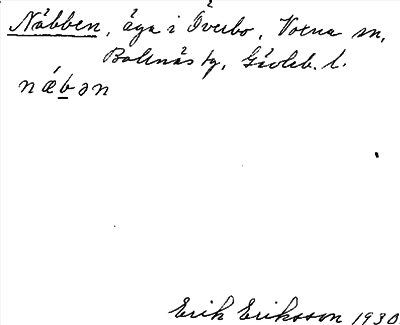 Näbben, äga i Överbo, Voxna sn,
Bollnäs tg, Gävleb. l.
næ´bən
Erik Eriksson 1930